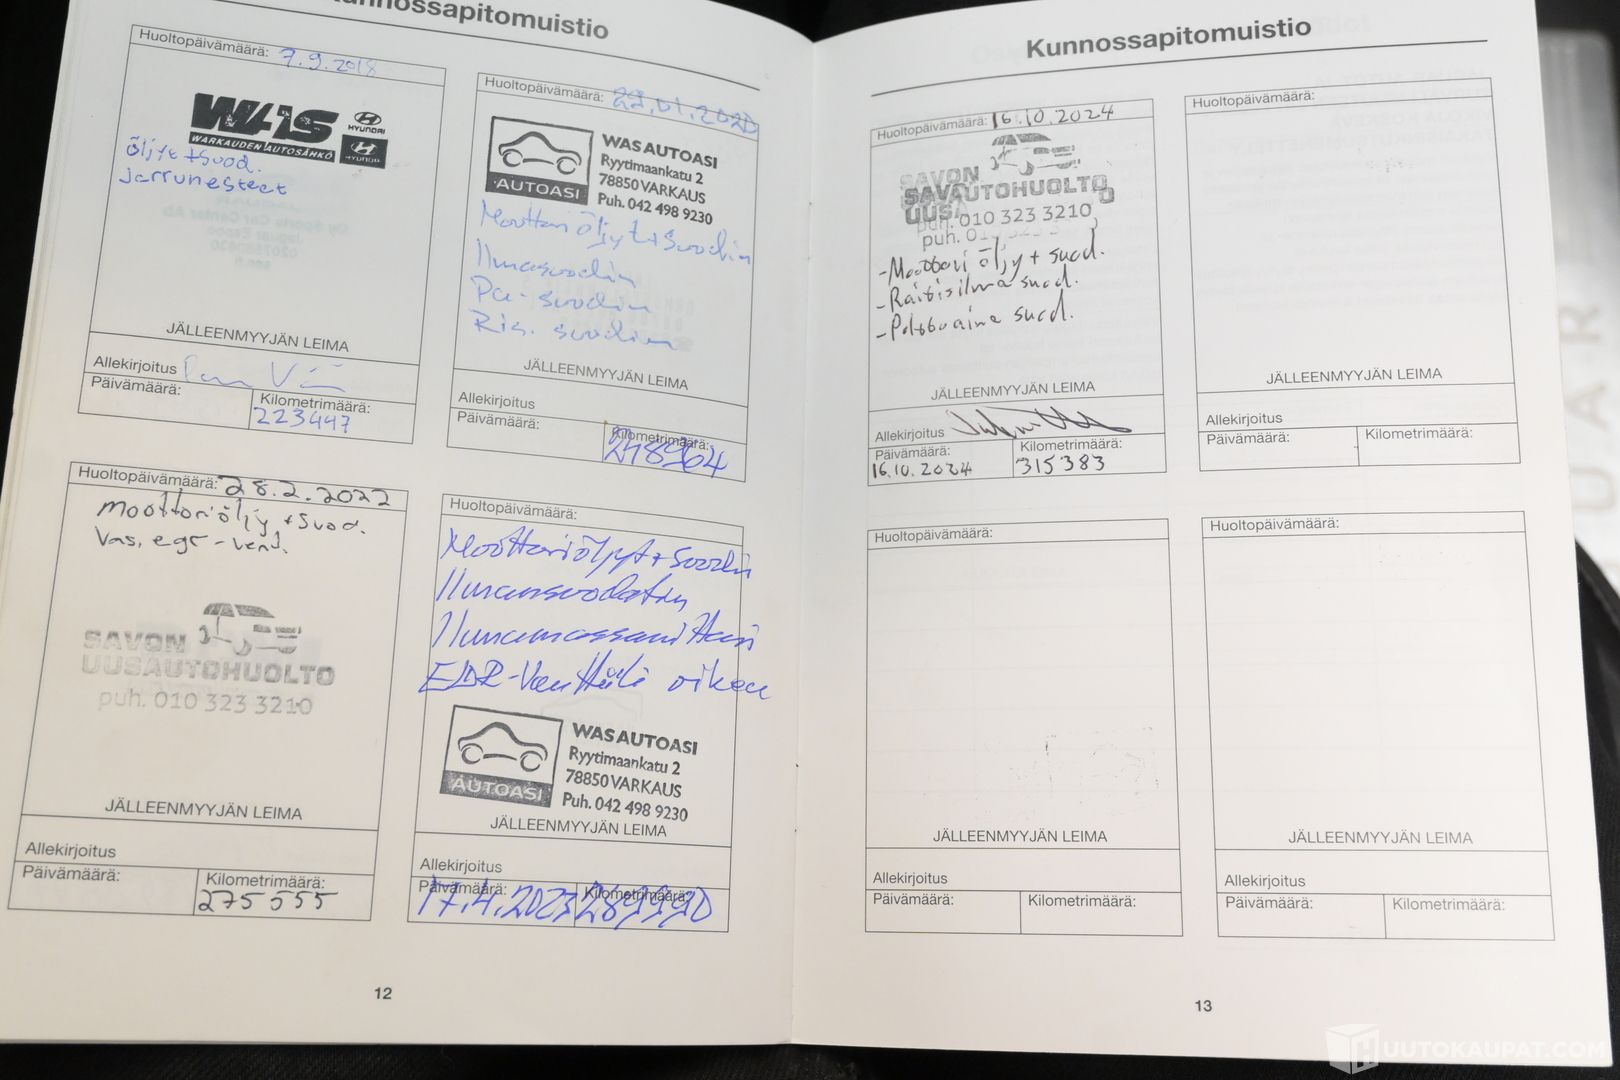 Kunnossapitomuistio
Huoltopäivämäärä: 7.9.2018
WAS
WARKAUDEN AUTOSÄHKÖ
HYUNDAI
HYUNDAI
öljyt + suod.
jarrunesteet
JÄLLEENMYYJÄN LEIMA
Allekirjoitus
Päivämäärä:
Kilometrimäärä:
223447
Huoltopäivämäärä: 29.01.2020
AUTOASI
WAS AUTOASI
Ryytimaankatu 2
78850 VARKAUS
Puh. 042 498 9230
Moottoriöljyt + suodin
Ilmasuodin
Pa-suodin
Ris. suodin
JÄLLEENMYYJÄN LEIMA
Allekirjoitus
Päivämäärä:
Kilometrimäärä:
248964
Huoltopäivämäärä: 28.2.2022
Moottoriöljy + suod.
Vas. egr-vent.
SAVON
UUSAUTOHUOLTO
puh. 010 323 3210
JÄLLEENMYYJÄN LEIMA
Allekirjoitus
Päivämäärä:
Kilometrimäärä:
275555
Huoltopäivämäärä:
Moottoriöljyt + suodin
Ilmansuodatin
Ilmamassamittari
oikea
AUTOASI
WAS AUTOASI
Ryytimaankatu 2
78850 VARKAUS
Puh. 042 498 9230
JÄLLEENMYYJÄN LEIMA
Allekirjoitus
Päivämäärä: 17.4.2023
Kilometrimäärä: 289990
12
Kunnossapitomuistio
Huoltopäivämäärä: 16.10.2024
SAVON
UUSAUTOHUOLTO
puh. 010 323 3210
- Moottori öljy + suod.
- Raitisilma suod.
- Polttoaine suod.
JÄLLEENMYYJÄN LEIMA
Allekirjoitus
Päivämäärä:
16.10.2024
Kilometrimäärä:
315383
Huoltopäivämäärä:
JÄLLEENMYYJÄN LEIMA
Allekirjoitus
Päivämäärä:
Kilometrimäärä:
Huoltopäivämäärä:
JÄLLEENMYYJÄN LEIMA
Allekirjoitus
Päivämäärä:
Kilometrimäärä:
Huoltopäivämäärä:
JÄLLEENMYYJÄN LEIMA
Allekirjoitus
Päivämäärä:
Kilometrimäärä:
13
HUUTOKAUPAT.COM